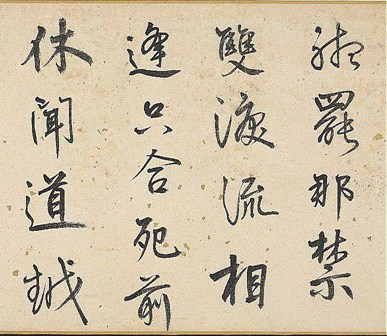 罷那禁
雙淚流相
逢只合死前
休聞道越